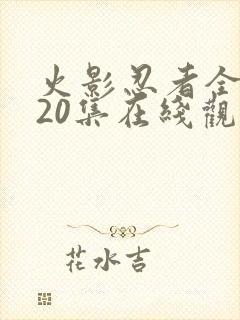 火影忍者全
20集在綫觀
花水吉